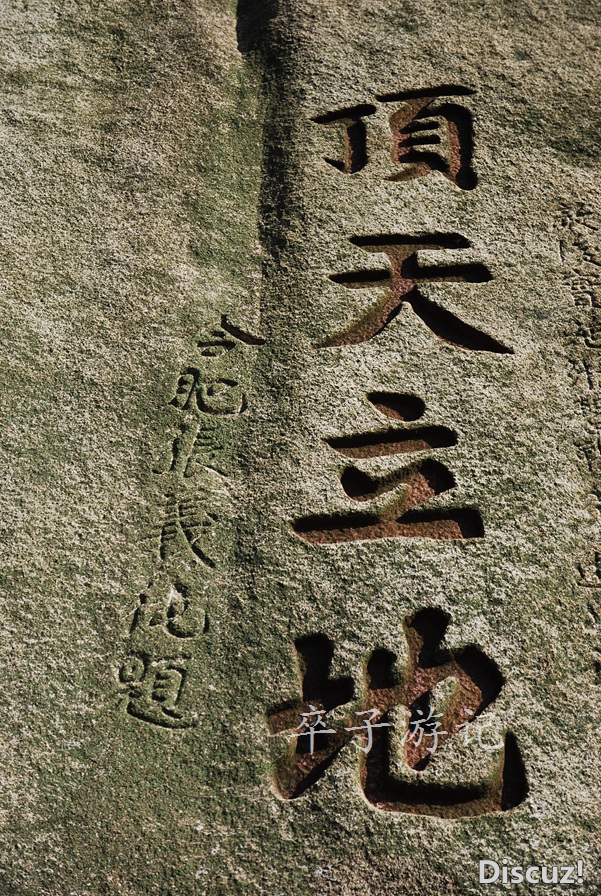 頂天立地
合肥張義純題
卒子游记
Discuz!